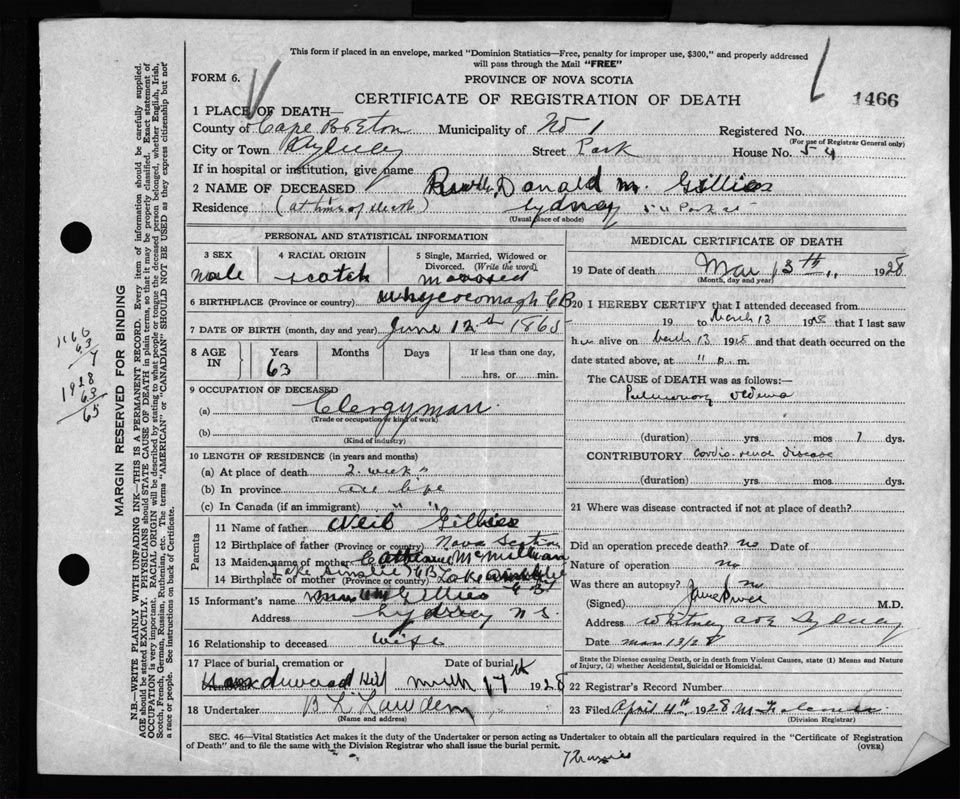 This form if placed in an envelope, marked "Dominion Statistics—Free, penalty for improper use, $300," and properly addressed
will pass through the Mail "FREE"
FORM 6.
PROVINCE OF NOVA SCOTIA
CERTIFICATE OF REGISTRATION OF DEATH
1466
1 PLACE OF DEATH—
County of Cape Breton Municipality of No 1 Registered No.
(For use of Registrar General only)
City or Town Sydney Street Park House No. 54
If in hospital or institution, give name
2 NAME OF DECEASED Donald M. Gillies
Residence (at time of death) Sydney 54 Park st
(Usual place of abode)
PERSONAL AND STATISTICAL INFORMATION
3 SEX 4 RACIAL ORIGIN 5 Single, Married, Widowed or
Divorced. (Write the word)
male scotch
6 BIRTHPLACE (Province or country) Whycocomagh C B
7 DATE OF BIRTH (month, day and year) June 12th 1865
8 AGE IN Years Months Days If less than one day,
63 hrs. or min.
9 OCCUPATION OF DECEASED
(a) Clergyman
(Trade or occupation or kind of work)
(b)
(Kind of industry)
10 LENGTH OF RESIDENCE (in years and months)
(a) At place of death 2 weeks
(b) In province all life
(c) In Canada (if an immigrant) " "
Parents
11 Name of father Neil Gillies
12 Birthplace of father (Province or country) Nova Scotia
13 Maiden name of mother Catherine McMillan
Lake Ainslie C B
14 Birthplace of mother (Province or country) Lake Ainslie
C B
15 Informant's name Gillies
Address Sydney N S.
16 Relationship to deceased Wife
17 Place of burial, cremation or Date of burial
Hill 17th 1928
18 Undertaker B L
(Name and address)
MEDICAL CERTIFICATE OF DEATH
19 Date of death Mar 13th 1928
(Month, day and year)
20 I HEREBY CERTIFY that I attended deceased from
19 to March 13 1928 that I last saw
him alive on March 13 1928 and that death occurred on the
date stated above, at 11 p. m.
The CAUSE of DEATH was as follows:—
Pulmonary oedema
(duration) yrs. mos 1 dys.
CONTRIBUTORY Cardio-renal disease
(duration) yrs mos dys.
21 Where was disease contracted if not at place of death?
Did an operation precede death? no Date of
Nature of operation no
Was there an autopsy? no
(Signed) M.D.
Address Whitney ave Sydney
Date Mar 13/28
State the Disease causing Death, or in death from Violent Causes, state (1) Means and Nature
of Injury, (2) whether Accidental, Suicidal or Homicidal.
22 Registrar's Record Number
23 Filed April 4th, 1928
(Division Registrar)
SEC. 46—Vital Statistics Act makes it the duty of the Undertaker or person acting as Undertaker to obtain all the particulars required in the "Certificate of Registration
of Death" and to file the same with the Division Registrar who shall issue the burial permit.
(OVER)
MARGIN RESERVED FOR BINDING
N.B.—WRITE PLAINLY WITH UNFADING INK—THIS IS A PERMANENT RECORD. Every item of information should be carefully supplied.
AGE should be stated EXACTLY. PHYSICIANS should STATE CAUSE OF DEATH in plain terms, so that it may be properly classified. Exact statement of
OCCUPATION is very important. RACIAL ORIGIN will be described by stating to what people or tongue the deceased person belonged, whether English, Irish,
Scotch, French, German, Russian, Ruthenian, etc. The terms "AMERICAN" or "CANADIAN" SHOULD NOT BE USED as they express citizenship but not
a race or people. See instructions on back of Certificate.
1928
63
65